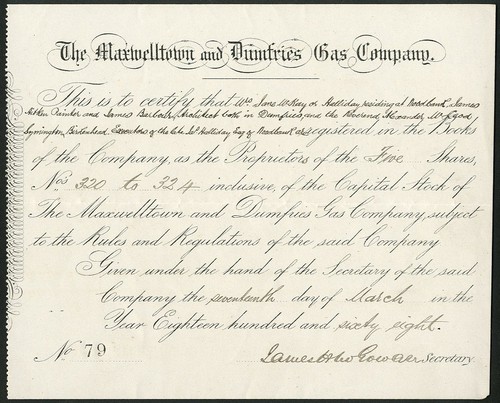 The Maxwelltown and Dumfries Gas Company.
This is to certify that Mrs Jane McKay or Halliday residing at Woodbank, James
Aitken Painter and James Barbour Architect both in Dumfries and the Reverend Alexander
Symington, Birkenhead, Executors of the late Halliday Esq of Woodbank are registered in the Books
of the Company, as the Proprietors of the Five Shares,
Nos 320 to 324 inclusive, of the Capital Stock of
The Maxwelltown and Dumfries Gas Company, subject
to the Rules and Regulations of the said Company
Given under the hand of the Secretary of the said
Company the seventeenth day of March in the
Year Eighteen hundred and sixty eight.
No 79
James McGowan Secretary